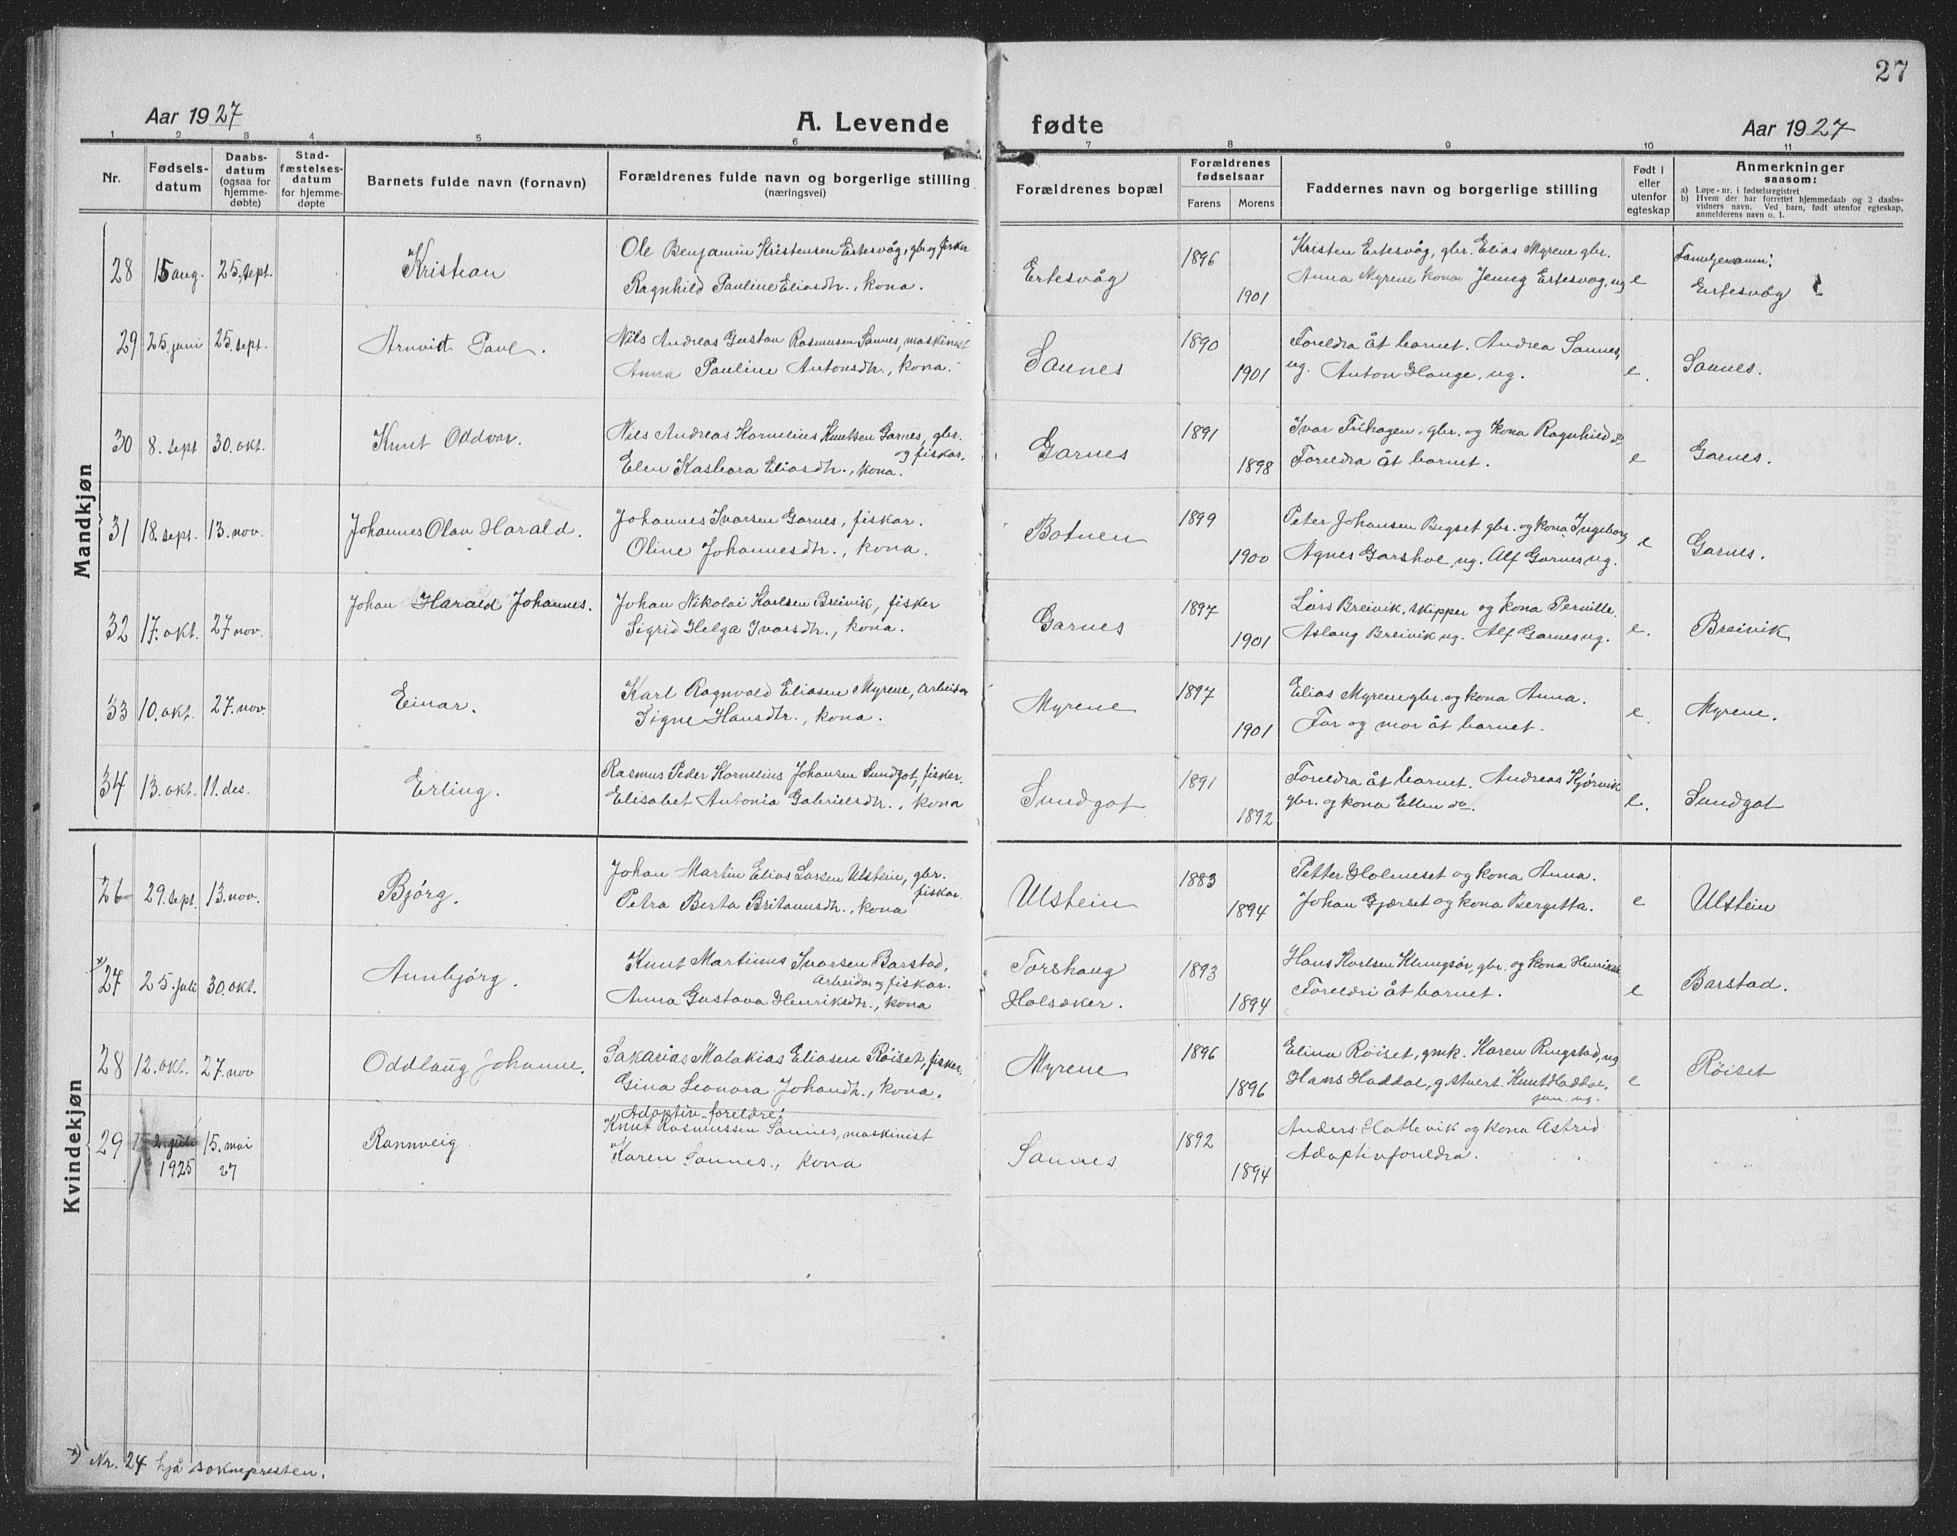 27
Aar 1927
A. Levende fødte
Aar 1927
1 2 3 4 5 6 7 8 9 10 11
Nr.
Fødsels-
datum
Daabs-
datum
(ogsaa for
hjemme-
døbte)
Stad-
fæstelses-
datum
for hjemme-
døpte
Barnets fulde navn (fornavn)
Forældrenes fulde navn og borgerlige stilling
(næringsvei)
Forældrenes bopæl
Forældrenes
fødselsaar
Farens
Morens
Faddernes navn og borgerlige stilling
Født i
eller
utenfor
egteskap
Anmerkninger
saasom:
a) Løpe-nr. i fødselsregistret
b) Hvem der har forrettet hjemmedaab og 2 daabs-
vidners navn. Ved barn, født utenfor egteskap,
anmelderens navn o. l.
Mandkjøn
28 15 aug. 25. sept. Kristian
Ole Benjamin Kristensen Ertesvåg, gbr og fisker
Ragnhild Pauline Eliasdtr., kona.
Ertesvåg 1896 1901
Kristen Ertesvåg, gbr. Elias Myrene gbr.
Anna Myrene kona Jenny Ertesvåg, ug
e
Ertesvåg
29 25. juni 25. sept. Arnvid Paul.
Nils Andreas Gustav Rasmussen Sannes, maskinist
Anna Pauline Antonsdtr., kona.
Sannes 1890 1901
Foreldra åt barnet. Andrea Sannes,
ug. Anton Hauge, ug.
e.
Sannes.
30 8. sept 30. okt. Knut Oddvar.
Nils Andreas Kornelius Knutsen Garnes, gbr.
og fiskar.
Elen Kasbara Eliasdtr., kona.
Garnes 1891 1898
Ivar Frihagen, gbr. og kona Ragnhild do
Foreldra åt barnet.
e
Garnes.
31 18. sept. 13. nov. Johannes Olav Harald.
Johannes Ivarsen Garnes, fiskar.
Oline Johannesdtr., kona.
Botnen 1899 1900
Peter Johansen Bigset gbr. og kona Ingeborg
Agnes Garshol, ug. Alf Garnes ug.
e
Garnes.
32 17. okt. 27 nov. Johan Harald Johannes.
Johan Nikolai Karlsen Breivik, fisker
Sigrid Helga Ivarsdtr., kona.
Garnes 1897 1901
Lars Breivik, skipper og kona Pernille.
Aslaug Breivik ug. Alf Garnes ug.
e.
Breivik
33 10. okt. 27. nov. Einar.
Karl Ragnvald Eliasen Myrene, arbeidar
Signe Hansdtr., kona.
Myrene 1897 1901
Elias Myrene gbr. og kona Anna.
Far og mor åt barnet.
e.
Myrene.
34 13. okt. 11. des. Erling.
Rasmus Peder Kornelius Johansen Sundgot, fisker.
Elisabet Antonia Gabrielsdtr., kona
Sundgot 1891 1892
Foreldra åt barnet. Andreas Kjørvik
gbr. og kona Ellen do.
e.
Sundgot
Kvindekjøn
26 29. sept. 13. nov. Bjørg.
Johan Martin Elias Larsen Ulstein, gbr.
fiskar.
Petra Berta Britanusdtr., kona
Ulstein 1883 1894
Petter Holmeset og kona Anna.
Johan Gjerset og kona Bergitta.
e
Ulstein
27 25. juli 30. okt. Annbjørg.
Knut Martinus Ivarsen Barstad,
Arbeidar og fiskar.
Anna Gustava Henriksdtr., kona
Torshaug
Holsæker. 1893 1894
Hans Karlsen Klungsør, gbr. og kona Henrikke
Foreldri åt barnet.
e
Barstad.
28 12. okt. 27. nov Oddlaug Johanne.
Sakarias Malakias Eliasen Røiset, fisker.
Gina Leonora Johandtr., kona.
Myrene 1896 1896
Elina Røiset, gmk. Karen Ringstad, ug
Hans Haddal, g stuert. Knut Haddal,
jun. ug.
e
Røiset
29 2. juli 15. mai Rannveig
1925 27
Adoptiv-foreldre:
Knut Rasmussen Sannes, maskinist
Karen Sannes., kona
Sannes 1892 1894
Anders Hatlevik og kona Astrid
Adoptivforeldra.
Nr. 24 hjå soknepresten.